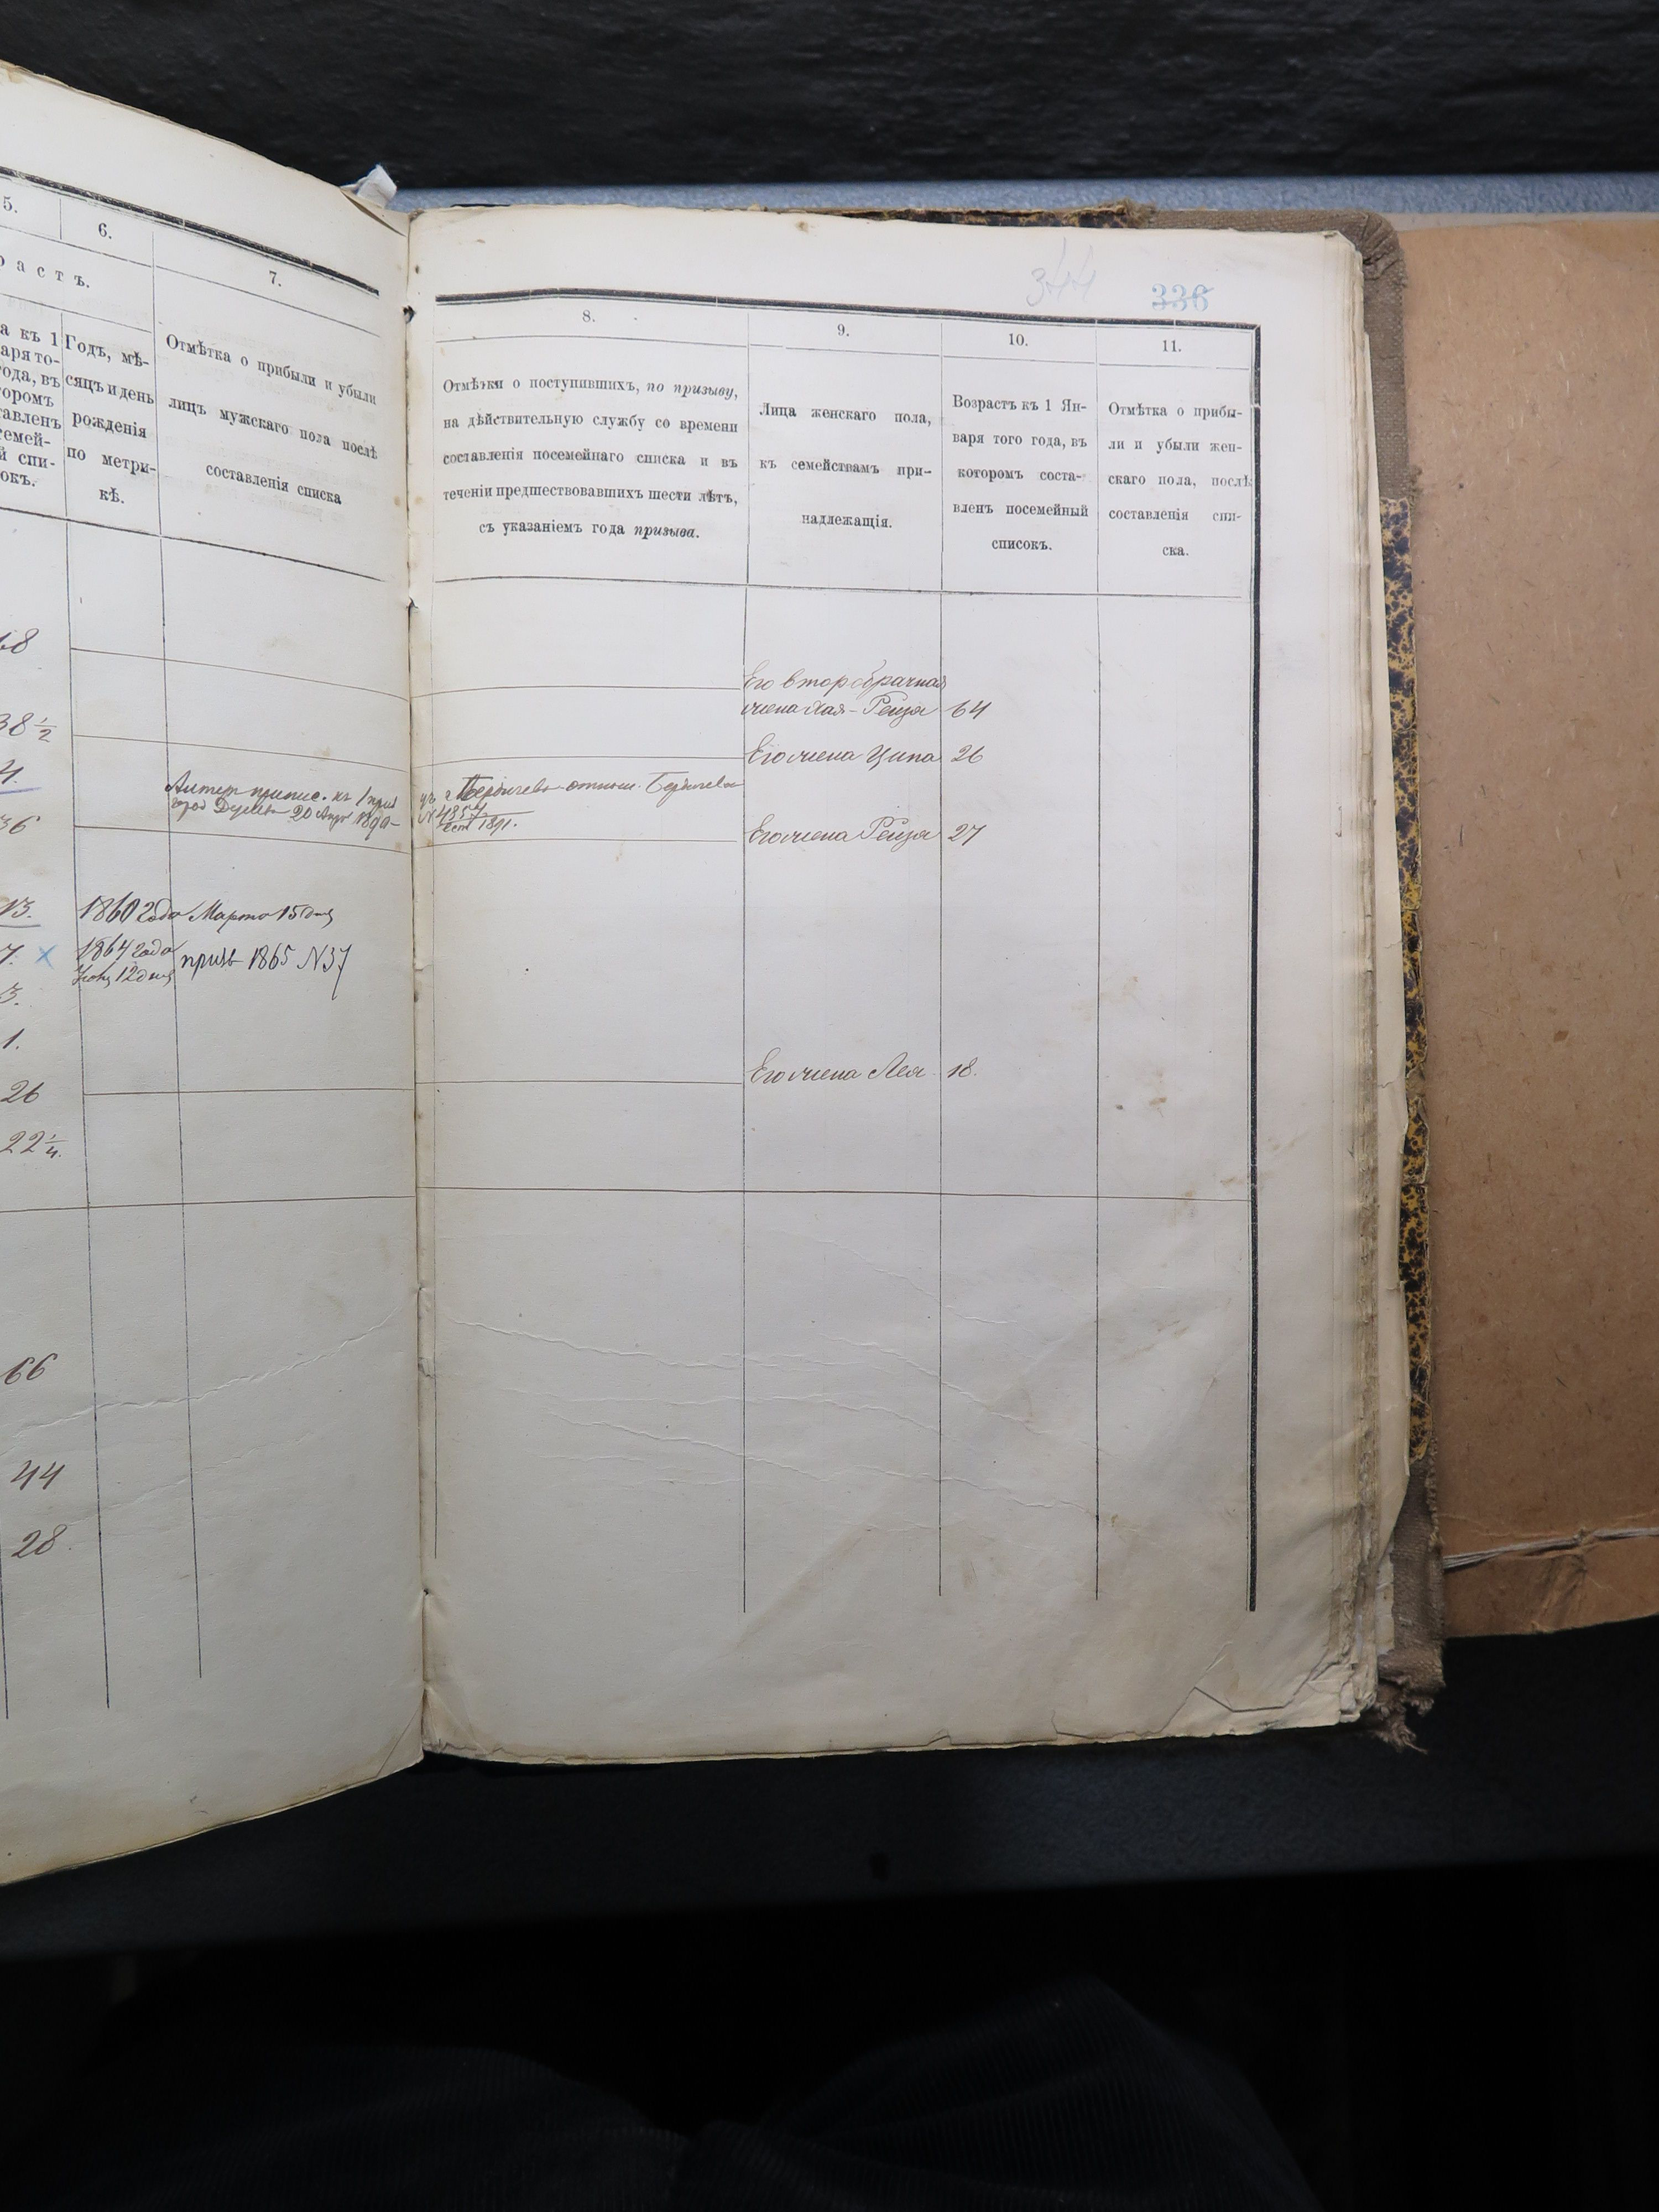 5.
6.
7.
растъ.
а къ 1
аря то-
года, въ
торомъ
тавленъ
семей-
й спи-
окъ.
Годъ, мѣ-
сяцъ и день
рожденія
по метри-
кѣ.
Отмѣтка о прибыли и убыли
лицъ мужскаго пола послѣ
составленія списка
68
38½
4.
36
13.
1860 года Марта 15 дня
7. х
1864 года
12 дня
призв 1865 N37
3.
1.
26
22¼.
66
44
28
344
336
8.
9.
10.
11.
Отмѣтки о поступившихъ, по призыву,
на дѣйствительную службу со времени
составленія посемейнаго списка и въ
теченіи предшествовавшихъ шести лѣтъ,
съ указаніемъ года призыва.
Лица женскаго пола,
къ семействамъ при-
надлежащія.
Возрастъ къ 1 Ян-
варя того года, въ
которомъ соста-
вленъ посемейный
списокъ.
Отмѣтка о прибы-
ли и убыли жен-
скаго пола, послѣ
составленія спи-
ска.
Его второбрачная
жена Хая-Рейзя 64
Его жена Ципа 26
Его жена Рейзя 27
Его жена Лея 18.